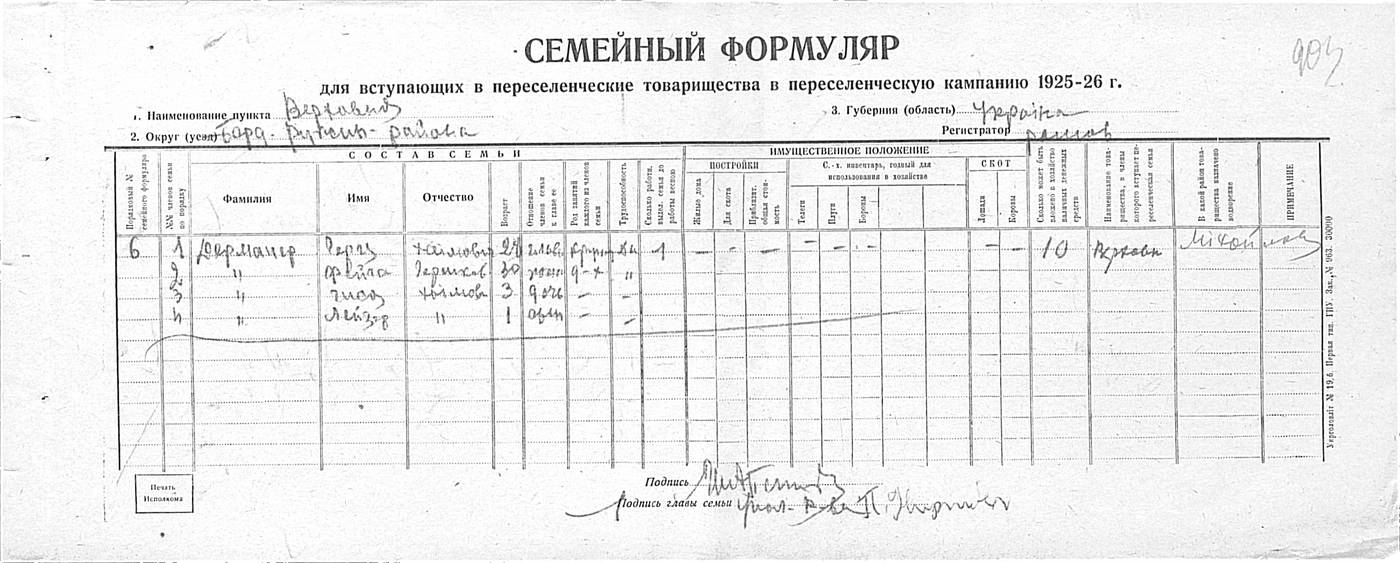 СЕМЕЙНЫЙ ФОРМУЛЯР
903
для вступающих в переселенческие товарищества в переселенческую кампанию 1925-26 г.
1. Наименование пункта Верховня
3. Губерния (область) Україна
2. Округ (уезд) Берд. Ружин. района
Регистратор
СОСТАВ СЕМЬИ
ИМУЩЕСТВЕННОЕ ПОЛОЖЕНИЕ
ПОСТРОЙКИ
С.-х. инвентарь, годный для использования в хозяйстве
СКОТ
Порядковый № семейного формуляра
№№ членов семьи по порядку
Фамилия
Имя
Отчество
Возраст
Отношение членов семьи к главе ее
Род занятий каждого из членов семьи
Трудоспособность
Сколько работн. выдел. семья до работы весною
Жилые дома
Для скота
Приблизит. общая стоимость
Телеги
Плуги
Бороны
Лошади
Коровы
Сколько может быть вложено в хозяйство наличных денежных средств
Наименование товарищества, в члены которого вступает переселенческая семья
В какой район товарищества назначено водворение
ПРИМЕЧАНИЕ
6 1 Дерманер Герш Хаимович глава 1 — - — - — — - — 10 Верховн
2 " Фейга Гершков 30 жена д-х "
3 " Хаимова 3 дочь — -
4 " Лейзер " 1 - —
Печать Исполкома
Подпись
Подпись главы семьи
Укрголовліт № 19,6. Первая тип. ГПУ. Зак., № 963. 30000